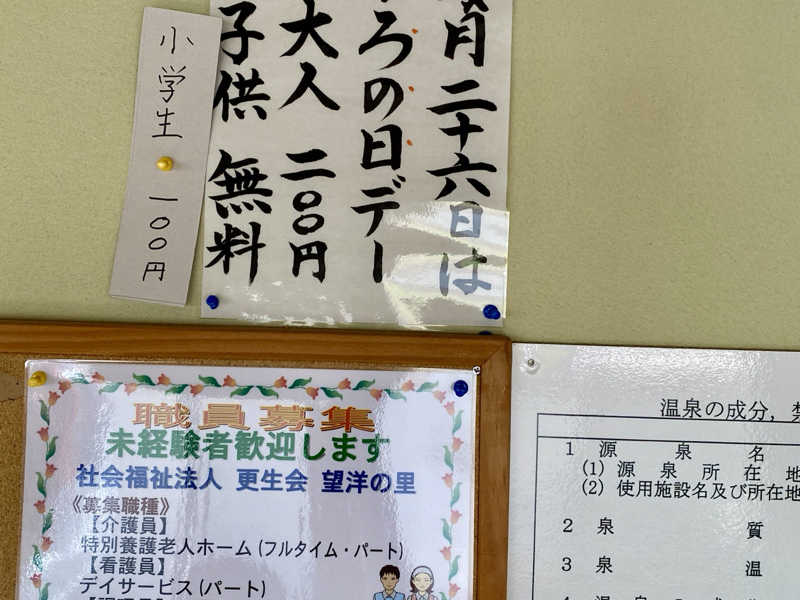 月二十六日は
ろの日デー
大人 二〇〇円
子供 無料
小学生 一〇〇円
職員募集
未経験者歓迎します
社会福祉法人 更生会 望洋の里
《募集職種》
【介護員】
特別養護老人ホーム(フルタイム・パート)
【看護員】
デイサービス(パート)
温泉の成分,
1 源泉名
(1) 源泉所在地
(2) 使用施設名及び所在地
2 泉質
3 泉温